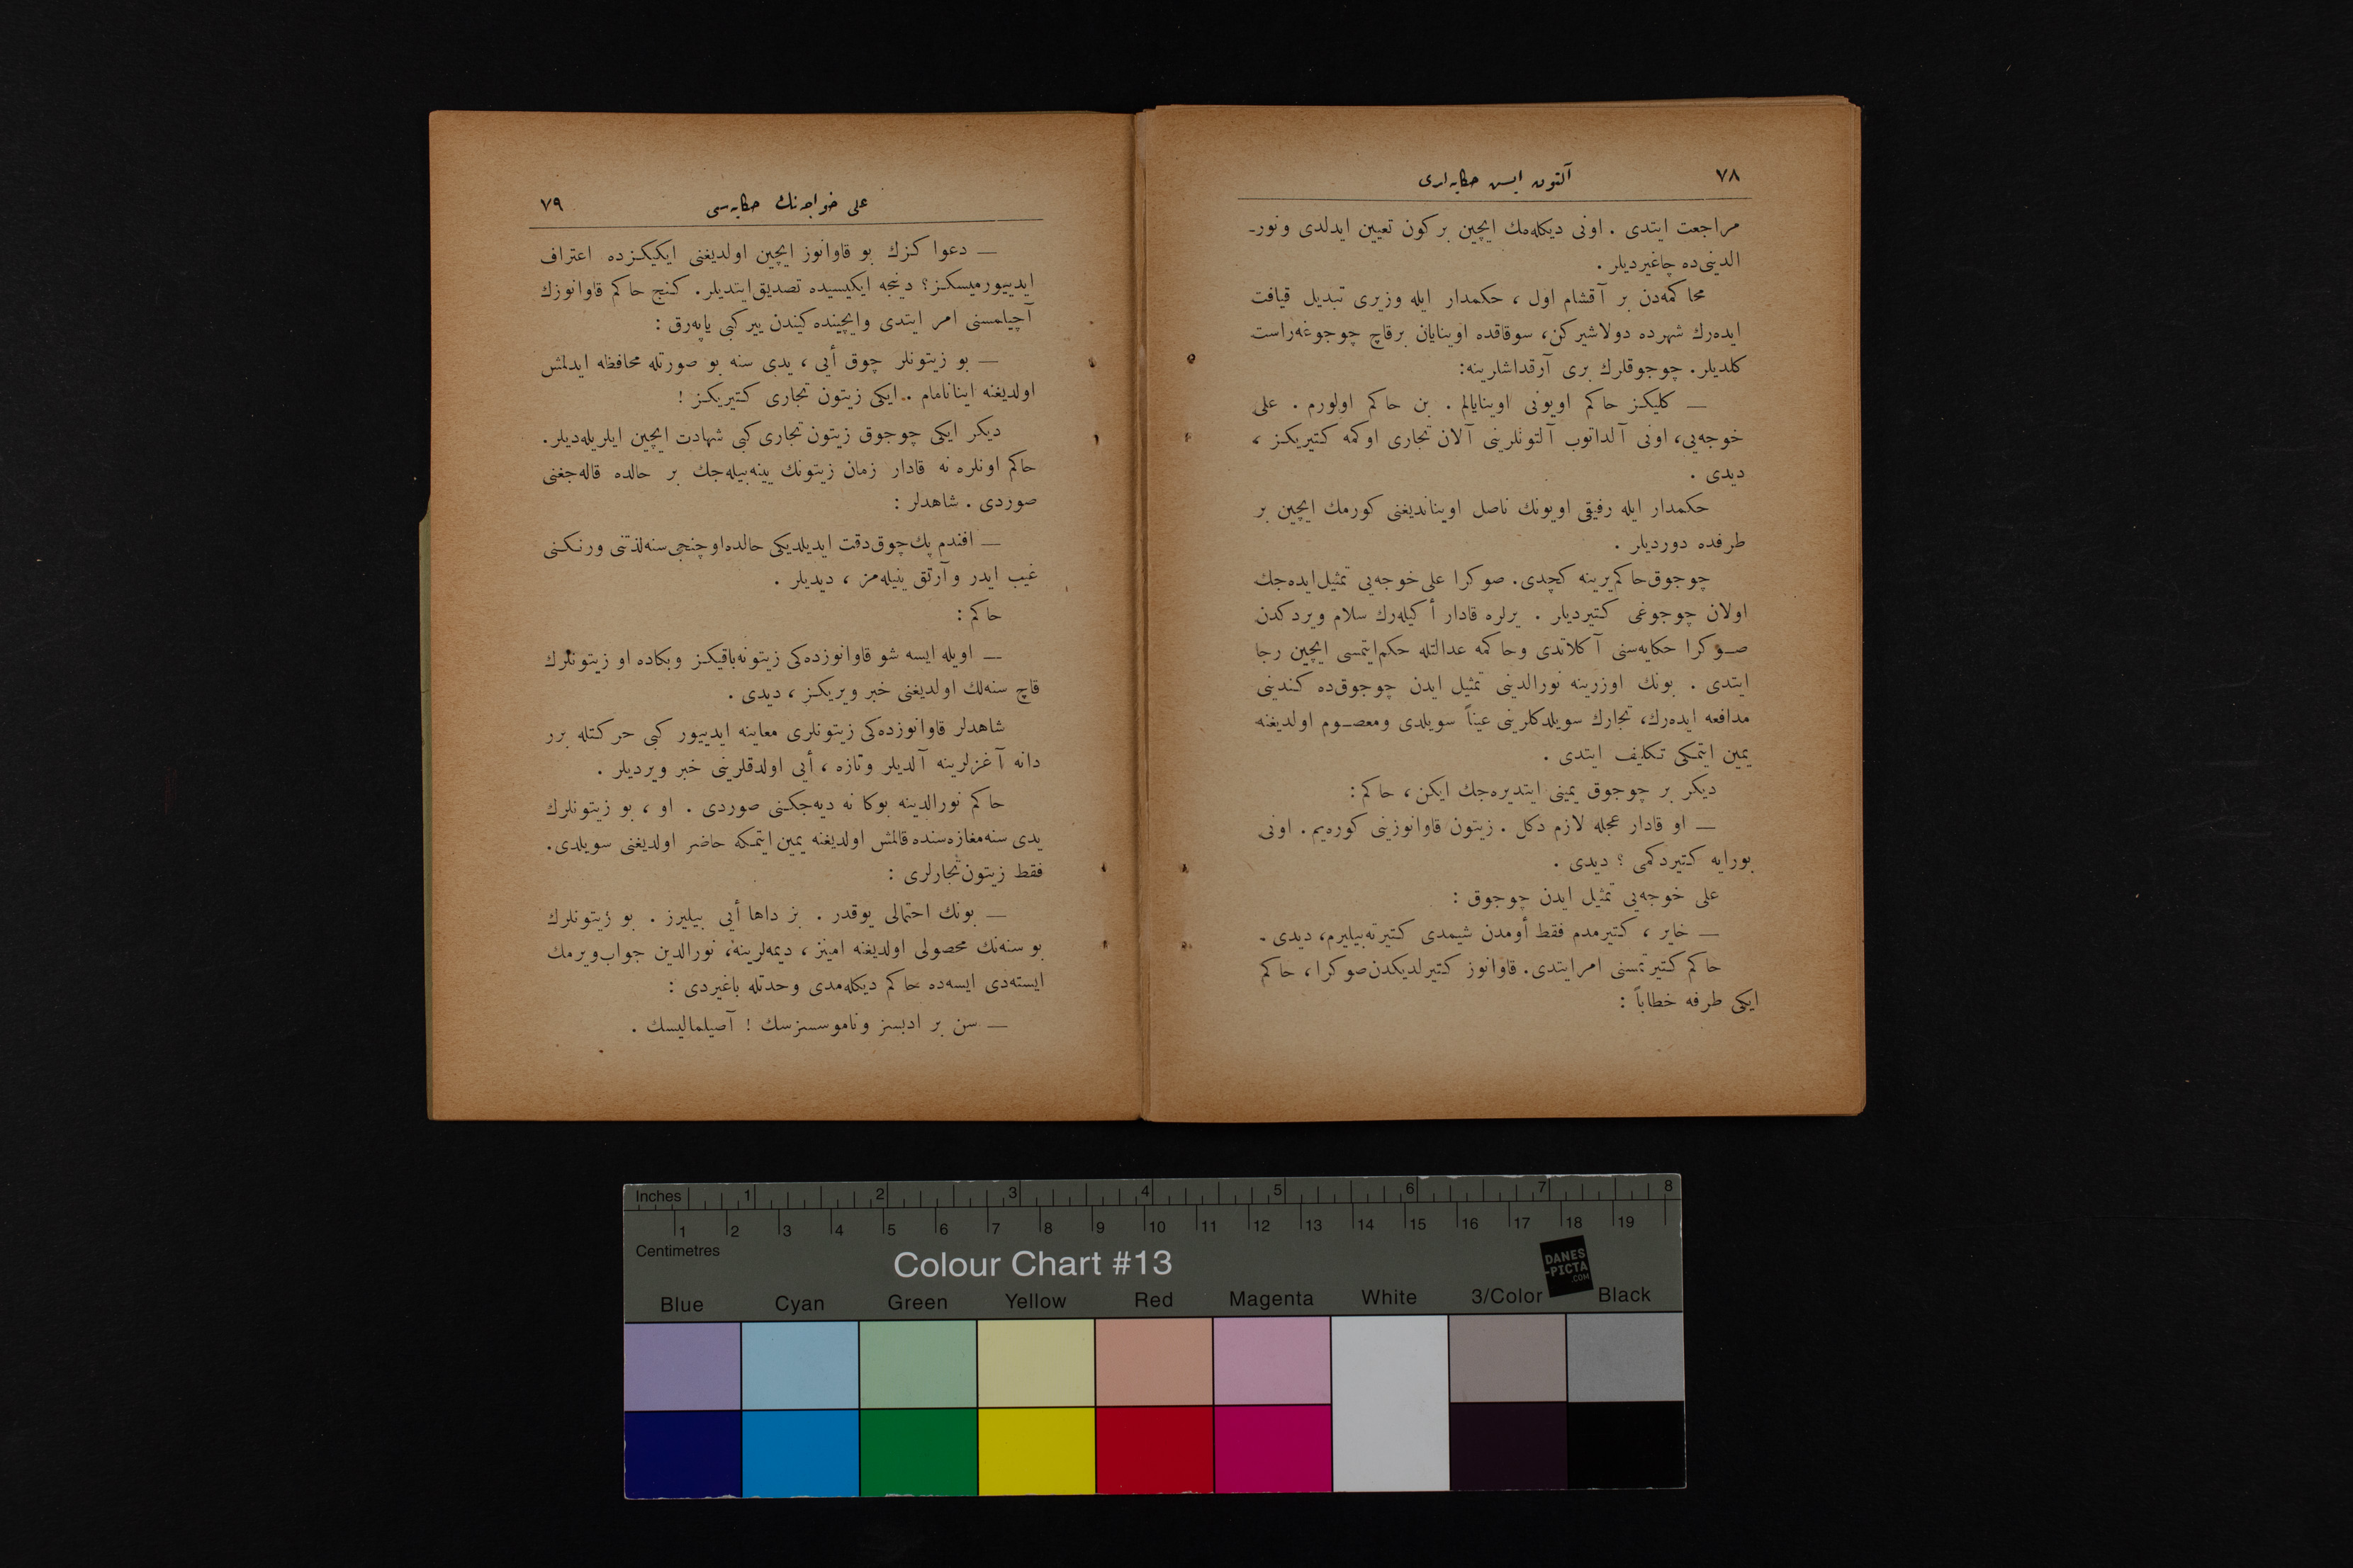 ٧٨
آلتون ایسن حکایه‌لری
مراجعت ایتدی . اونی دیکله‌مك ایچین بر كون تعیین ایدلدی ونور-
الدینی‌ده چاغیردیلر .
محاكمه‌دن بر آقشام اول ، حكمدار ایله وزیری تبدیل قیافت
ایده‌رك شهرده دولاشیركن، سوقاقده اوینایان برقاچ چوجوغه‌راست
كلدیلر. چوجوقلرك بری آرقداشلرینه:
— كلیكز حاكم اویونی اوینایالم . بن حاكم اولورم . علی
خوجه‌یی، اونی آلداتوب آلتونلرینی آلان تجاری اوكمه كتیریكز ،
دیدی .
حكمدار ایله رفیقی اویونك ناصل اویناندیغنی كورمك ایچین بر
طرفده دوردیلر .
چوجوق‌حاكم‌یرینه كچدی. صوكرا علی‌خوجه‌یی تمثیل‌ایده‌جك
اولان چوجوغی كتیردیلر . یرلره قادار أكیله‌رك سلام ویردكدن
صوكرا حكایه‌سنی آكلاتدی وحاكمه عدالتله حكم‌ایتمسی ایچین رجا
ایتدی . بونك اوزرینه نورالدینی تمثیل ایدن چوجوق‌ده كندینی
مدافعه ایده‌رك، تجارك سویلدكلرینی عیناً سویلدی ومعصوم اولدیغنه
یمین ایتمكی تكلیف ایتدی .
دیكر بر چوجوق یمینی ایتدیره‌جك ایكن، حاكم:
— او قادار عجله لازم دكل . زیتون قاوانوزینی كوره‌یم . اونی
بورایه كتیردكمی ؟ دیدی .
علی خوجه‌یی تمثیل ایدن چوجوق :
— خایر ، كتیرمدم فقط أومدن شیمدی كتیرته‌بیلیرم، دیدی .
حاكم كتیرتمسنی امرایتدی. قاوانوز كتیرلدیكدن‌صوكرا، حاكم
ایكی طرفه خطاباً :
علی خواجه‌نك حكایه‌سی
٧٩
— دعوا كزك بو قاوانوز ایچین اولدیغنی ایكیكزده اعتراف
ایدییورمیسكز؟ دینجه ایكیسیده تصدیق‌ایتدیلر. كنج حاكم قاوانوزك
آچیلمسنی امر ایتدی وایچینده‌كیندن ییر كبی یاپه‌رق :
— بو زیتونلر چوق أیی ، یدی سنه بو صورتله محافظه ایدلمش
اولدیغنه اینانامام . ایكی زیتون تجاری كتیریكز !
دیكر ایكی چوجوق زیتون‌تجاری‌كبی شهادت ایچین ایلریله‌دیلر.
حاكم اونلره نه قادار زمان زیتونك یینه‌بیله‌جك بر حالده قاله‌جغنی
صوردی . شاهدلر :
— افندم پك‌چوق‌دقت ایدیلدیكی حالده‌اوچنجی‌سنه‌لذتنی ورنكنی
غیب ایدر وآرتق ینیله‌مز ، دیدیلر .
حاكم :
— اویله ایسه شو قاوانوزده‌كی زیتونه‌باقیكز وبكاده او زیتونلرك
قاچ سنه‌لك اولدیغنی خبر ویریكز ، دیدی .
شاهدلر قاوانوزده‌كی زیتونلری معاینه ایدییور كبی حركتله برر
دانه آغزلرینه آلدیلر وتازه ، أیی اولدقلرینی خبر ویردیلر .
حاكم نورالدینه بوكا نه دیه‌جكنی صوردی . او ، بو زیتونلرك
یدی سنه‌مغازه‌سنده قالمش اولدیغنه یمین ایتمكه حاضر اولدیغنی سویلدی.
فقط زیتون‌تجارلری :
— بونك احتمالی یوقدر . بز داها أیی بیلیرز . بو زیتونلرك
بو سنه‌نك محصولی اولدیغنه امینز ، دیمه‌لرینه، نورالدین جواب‌ویرمك
ایسته‌دی ایسه‌ده حاكم دیكله‌مدی وحدتله باغیردی :
— سن بر ادبسز وناموسسزسك ! آصیلمالیسك .
Inches 1 2 3 4 5 6 7 8
1 2 3 4 5 6 7 8 9 10 11 12 13 14 15 16 17 18 19
Centimetres
Colour Chart #13
DANES
-PICTA
.COM
Blue Cyan Green Yellow Red Magenta White 3/Color Black